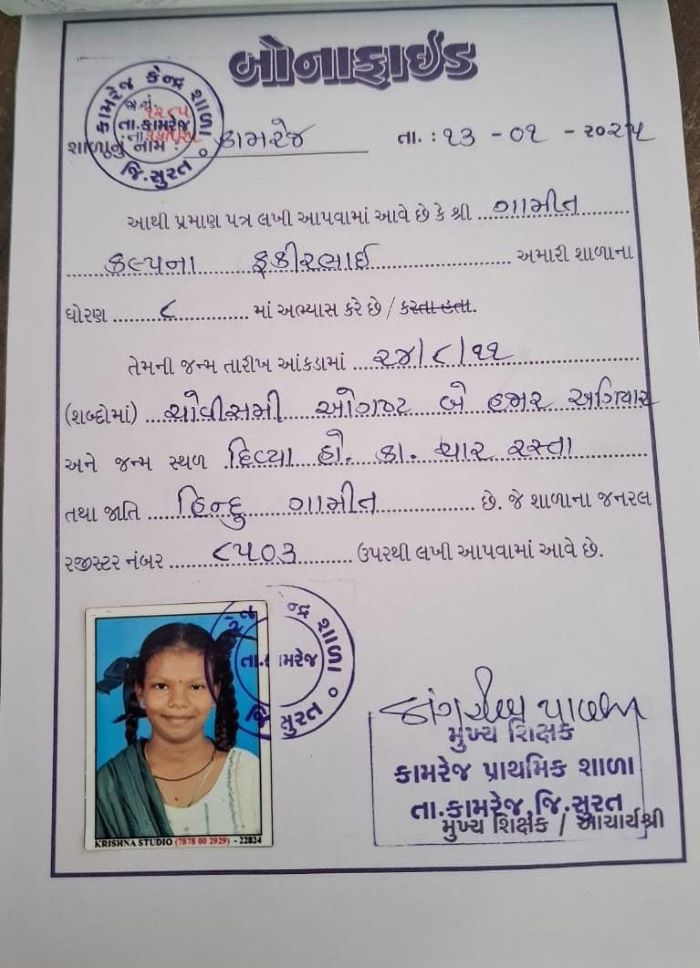 બોનાફાઈડ
કામરેજ કેન્દ્ર શાળા
તા.કામરેજ
જિ.સુરત
શાળાનું નામ : કામરેજ તા. : ૧૩ - ૦૧ - ૨૦૨૫
આથી પ્રમાણ પત્ર લખી આપવામાં આવે છે કે શ્રી ગામીત
કલ્પના ફકીરભાઈ અમારી શાળાના
ધોરણ ૮ માં અભ્યાસ કરે છે / કરતા હતા.
તેમની જન્મ તારીખ આંકડામાં ૨૪/૮/૧૧
(શબ્દોમાં) ચોવીસમી ઓગષ્ટ બે હજાર અગિયાર
અને જન્મ સ્થળ દિવ્યા હો. કા. ચાર રસ્તા
તથા જાતિ હિન્દુ ગામીત છે. જે શાળાના જનરલ
રજીસ્ટર નંબર ૮૫૦૩ ઉપરથી લખી આપવામાં આવે છે.
ન્દ્ર શાળા
તા.કામરેજ
જિ સુરત
KRISHNA STUDIO (7878 00 2929) - 22824
મુખ્ય શિક્ષક
કામરેજ પ્રાથમિક શાળા
તા.કામરેજ,જિ.સુરત
મુખ્ય શિક્ષક / આચાર્યશ્રી